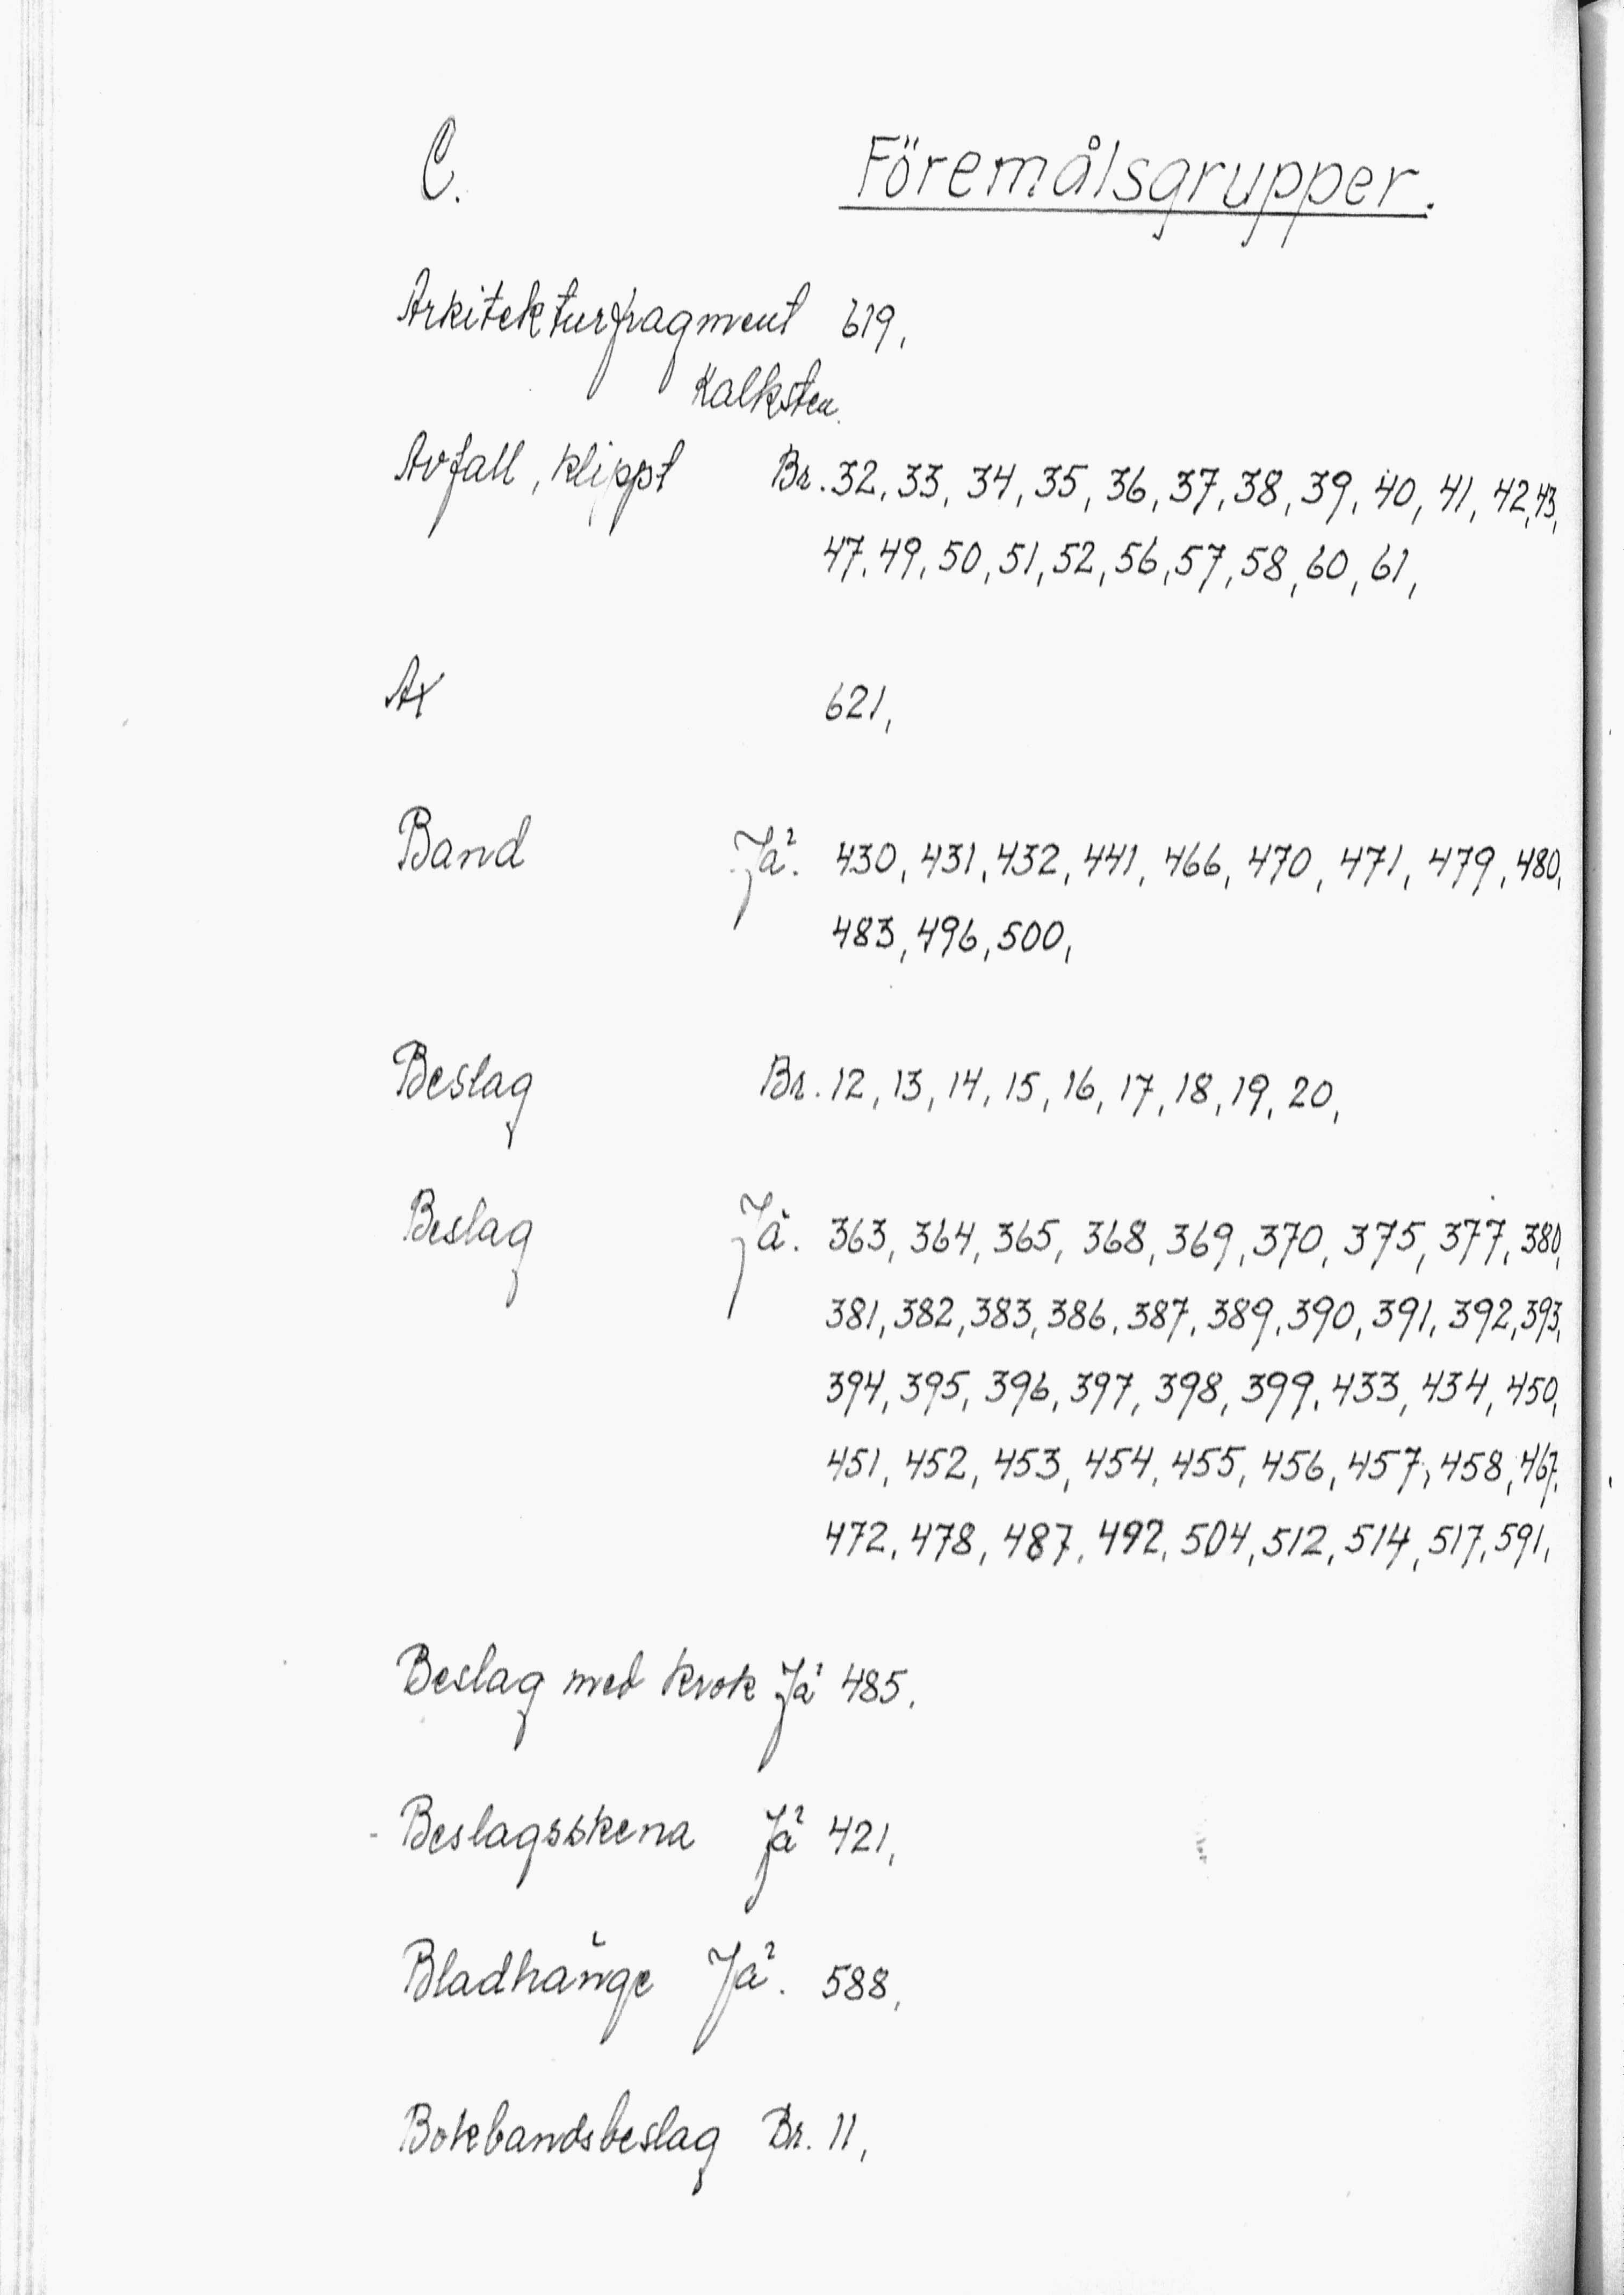 C. Föremålsgrupper.
Arkitekturfragment 619,
Kalksten.
Avfall, klippt Br. 32, 33, 34, 35, 36, 37, 38, 39, 40, 41, 42, 43,
47, 49, 50, 51, 52, 56, 57, 58, 60, 61,
Ax 621,
Band Jä. 430, 431, 432, 441, 466, 470, 471, 479, 480,
483, 496, 500,
Beslag Br. 12, 13, 14, 15, 16, 17, 18, 19, 20,
Beslag Jä. 363, 364, 365, 368, 369, 370, 375, 377, 380,
381, 382, 383, 386, 387, 389, 390, 391, 392, 393,
394, 395, 396, 397, 398, 399, 433, 434, 450,
451, 452, 453, 454, 455, 456, 457, 458, 467,
472, 478, 487, 492, 504, 512, 514, 517, 591,
Beslag med krok Jä 485.
Beslagsskena Jä 421,
Bladhänge Jä. 588,
Bokbandsbeslag Br. 11,